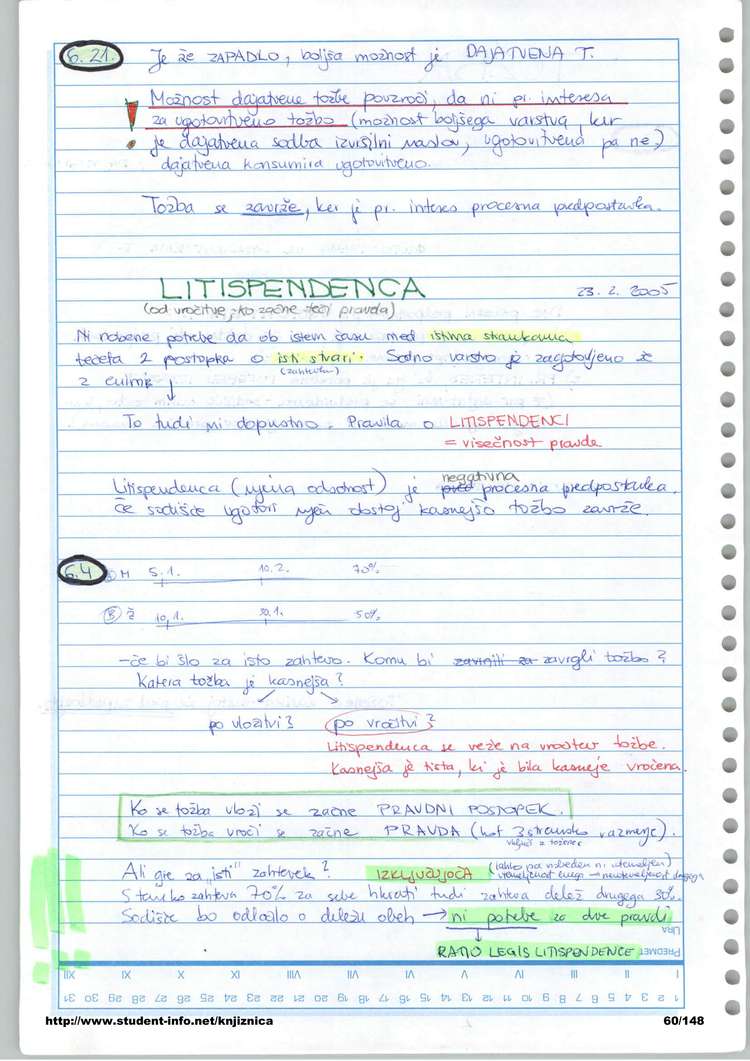 6.21. Je že ZAPADLO, boljša možnost je DAJATVENA T.
! Možnost dajatvene tožbe povzroči, da ni pr. interesa
za ugotovitveno tožbo (možnost boljšega varstva, ker
je dajatvena sodba izvršilni naslov, ugotovitvena pa ne)
dajatvena konsumira ugotovitveno.
Tožba se zavrže, ker je pr. interes procesna predpostavka.
LITISPENDENCA 23. 2. 2005
(od vročitve, ko začne teči pravda)
Ni nobene potrebe da ob istem času med istima strankama
tečeta 2 postopka o isti stvari. Sodno varstvo je zagotovljeno že
(zahtevku)
z enim
To tudi ni dopustno. Pravila o LITISPENDENCI
= visečnost pravde
negativna
Litispendenca (njena odsotnost) je pred procesna predpostavka.
Če sodišče ugotovi njen obstoj kasnejšo tožbo zavrže.
6.4 A M 5.1. 10.2. 70%
B Ž 10.1. 30.1. 50%
- če bi šlo za isto zahtevo. Komu bi zavrnili za zavrgli tožbo?
Katera tožba je kasnejša?
po vložitvi? po vročitvi?
Litispendenca se veže na vročitev tožbe.
Kasnejša je tista, ki je bila kasneje vročena.
Ko se tožba vloži se začne PRAVDNI POSTOPEK.
Ko se tožba vroči se začne PRAVDA (kot 3stransko razmerje).
Ali gre za "isti" zahtevek? IZKLJUČUJOČA (lahko pa nobeden ni utemeljen)
utemeljenost enega → neutemeljenost drugega
S tem ko zahteva 70% za sebe hkrati tudi zahteva delež drugega 30%.
Sodišče bo odločalo o deležu obeh → ni potrebe za dve pravdi
URA
RATIO LEGIS LITISPENDENCE PREDMET
I II III IV V VI VII VIII IX X XI XII
1 2 3 4 5 6 7 8 9 10 11 12 13 14 15 16 17 18 19 20 21 22 23 24 25 26 27 28 29 30 31
http://www.student-info.net/knjiznica 60/148